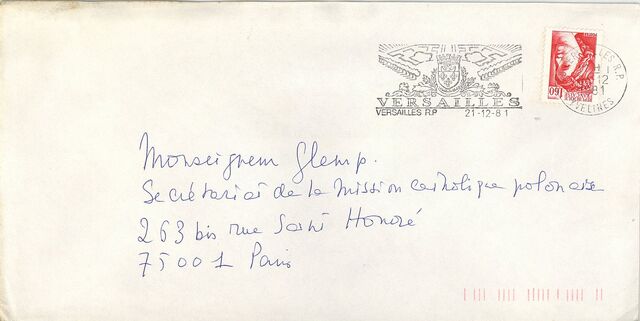 VERSAILLES
VERSAILLES R.P 21-12-81
VERSAILLES R.P.
12
81
YVELINES
1,60
Monseigneur Glemp.
Secrétariat de la Mission catholique polonaise
263 bis rue Saint Honoré
75001 Paris